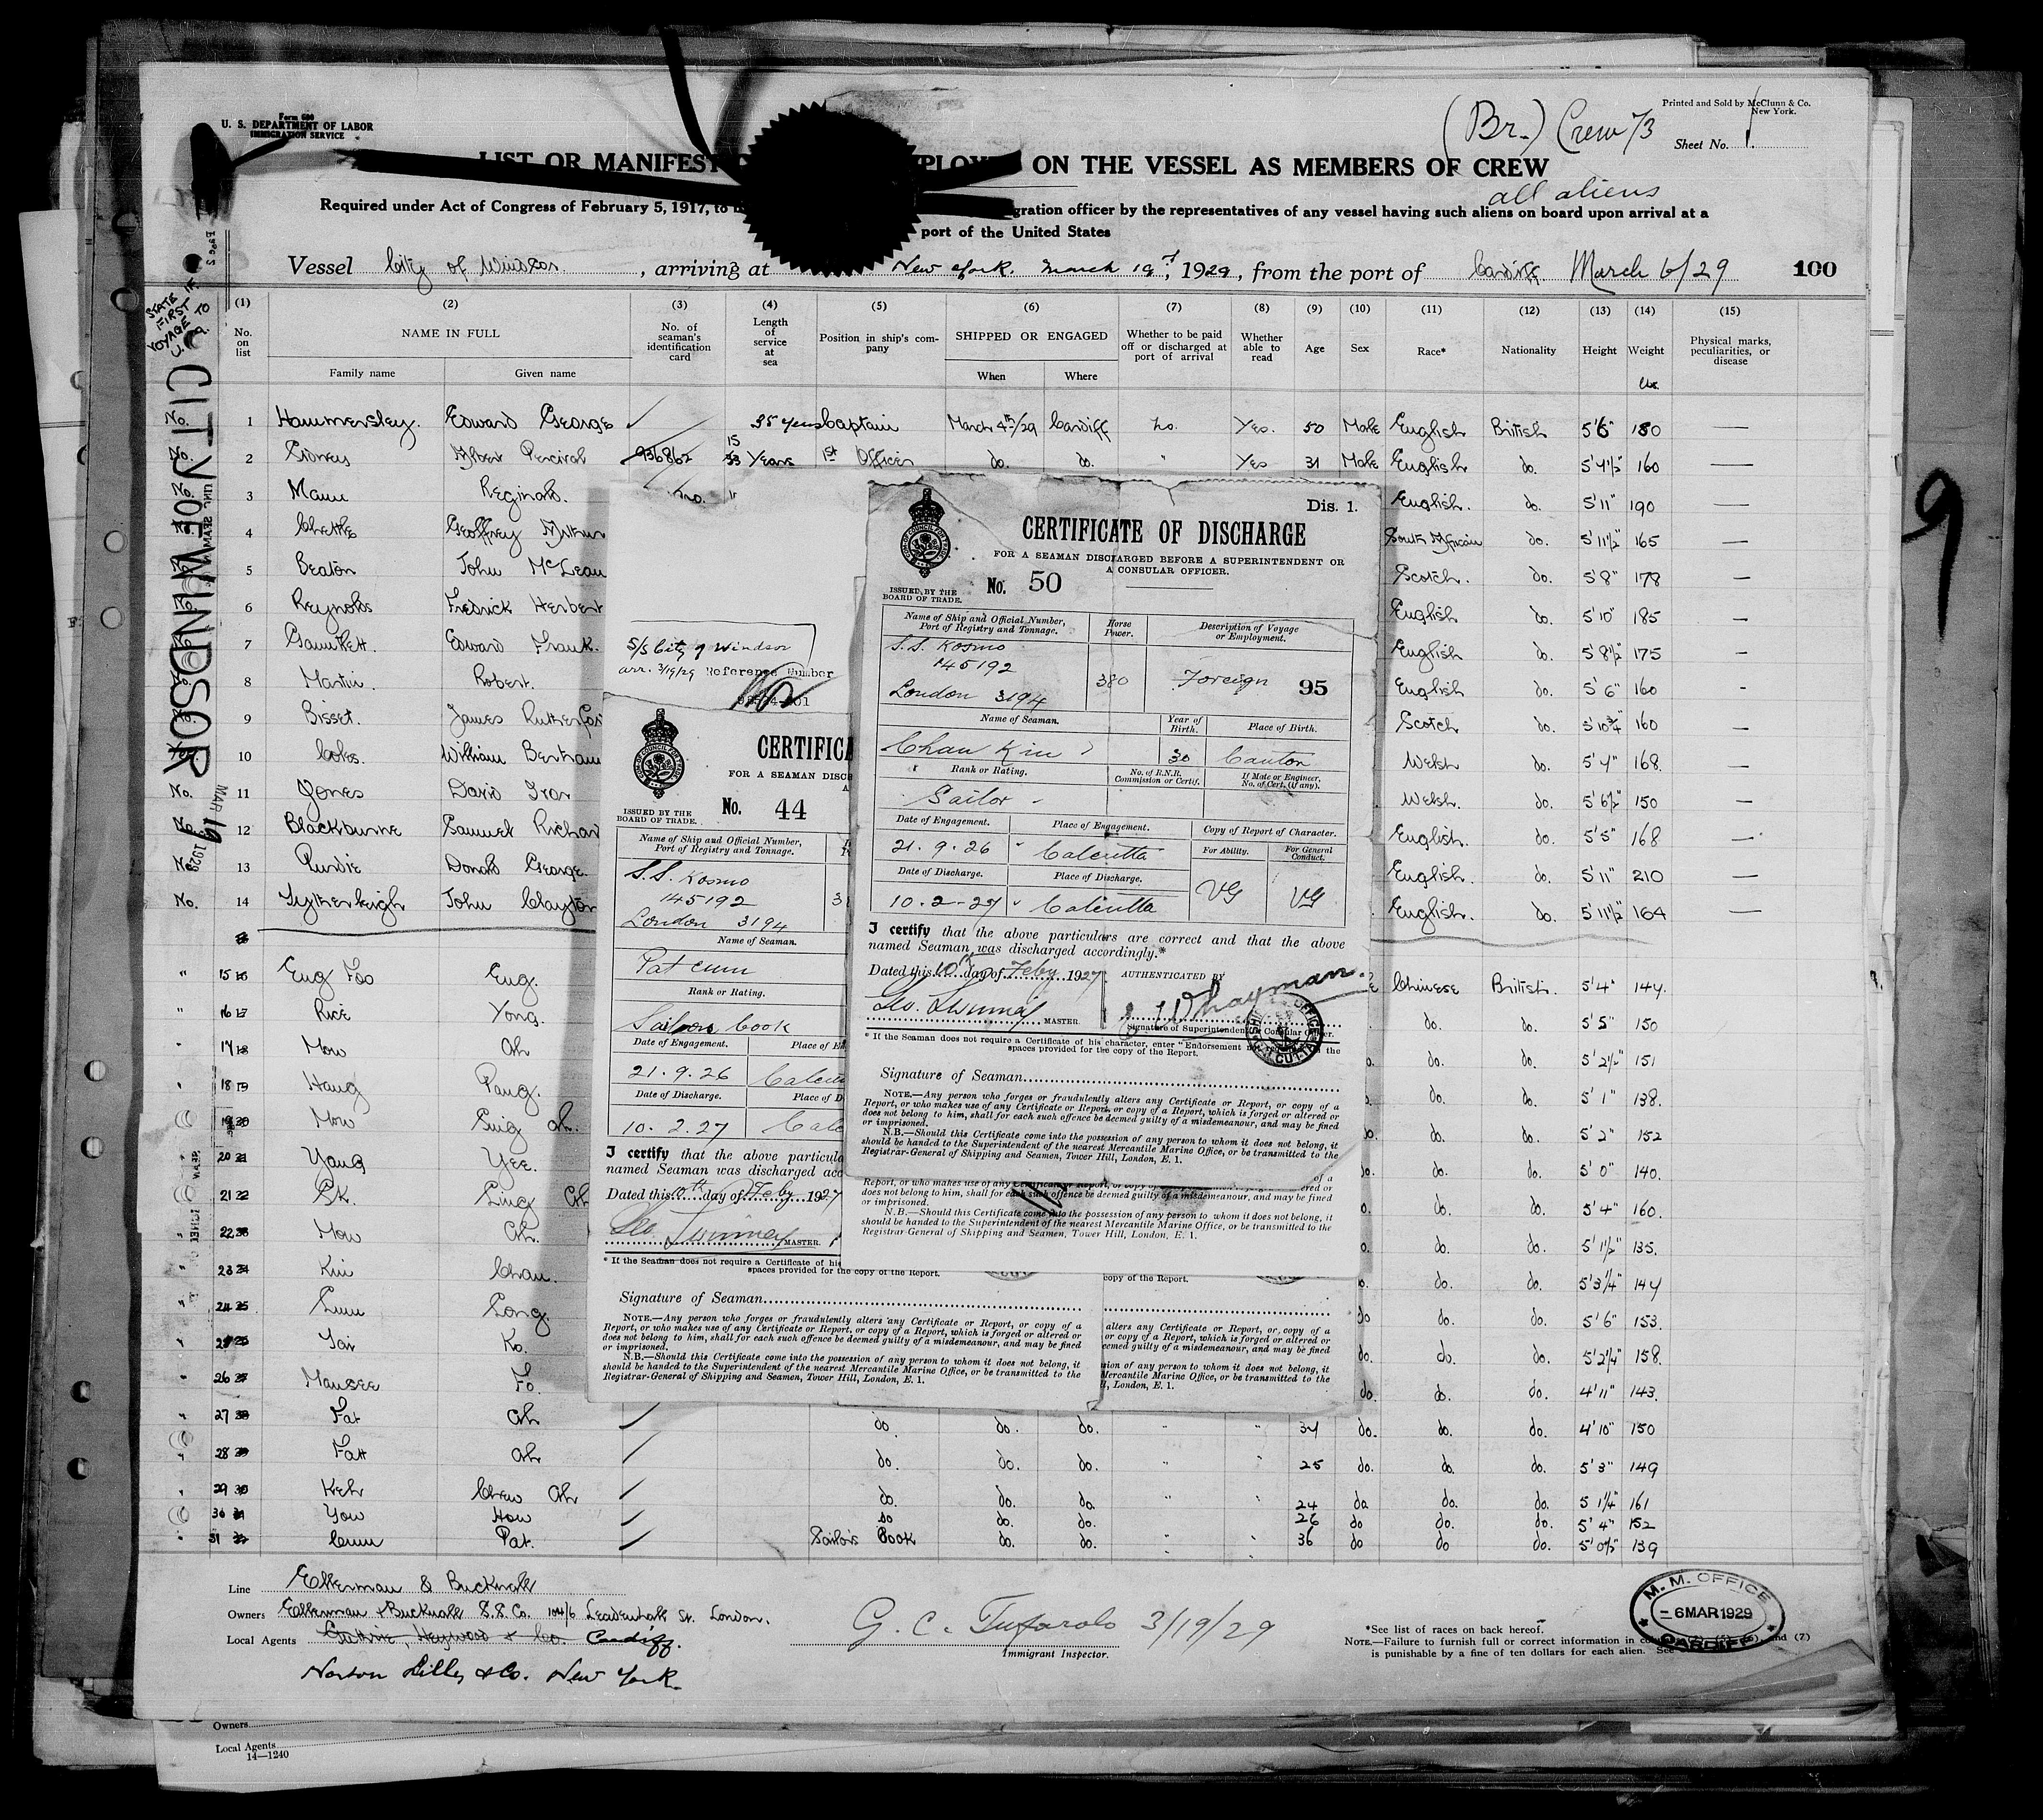 Form 680
U. S. DEPARTMENT OF LABOR
IMMIGRATION SERVICE
Printed and Sold by McClunn & Co.
New York.
(Br.) Crew 73
Sheet No. 1
LIST OR MANIFEST ON THE VESSEL AS MEMBERS OF CREW
all aliens
Required under Act of Congress of February 5, 1917, to gration officer by the representatives of any vessel having such aliens on board upon arrival at a
port of the United States
Vessel City of Windsor, arriving at New York. March 19th, 1929, from the port of Cardiff. March 6/29 100
STATE IF FIRST VOYAGE TO U.S.A.
CITY OF WINDSOR
MAR 19 1929
(1) (2) (3) (4) (5) (6) (7) (8) (9) (10) (11) (12) (13) (14) (15)
No. on list
NAME IN FULL
Family name Given name
No. of seaman's identification card
Length of service at sea
Position in ship's company
SHIPPED OR ENGAGED
When Where
Whether to be paid off or discharged at port of arrival
Whether able to read
Age Sex Race* Nationality Height Weight
Physical marks, peculiarities, or disease
No. 1 Hammersley. Edward George 35 years Captain March 4th/29 Cardiff No. Yes. 50 Male English British 5'6" 180
No. 2 Albert Percival 936862 15 Years 1st Officer do. do. " Yes 31 Male English do. 5'4½" 160
3 Mann Reginald. English. do. 5'11" 190
4 Geoffrey Arthur South African do. 5'11½" 165
5 Beaton John McLean Scotch. do. 5'8" 178
6 Reynolds Fredrick Herbert English do. 5'10" 185
7 Edward Frank. English do. 5'8½" 175
8 Martin. Robert. English do. 5'6" 160
9 Bisset. James Scotch do. 5'10¾" 160
10 Coles. William Bertram Welsh do. 5'4" 168.
No. 11 Jones David Ivor Welsh. do. 5'6½" 150
12 Blackburne Samuel Richard English. do. 5'5" 168
No. 13 Purdie Donald George. English. do. 5'11" 210
No. 14 Tytherleigh John Clayton English. do. 5'11½" 164
" 15 Eng Foo Eng. Chinese British. 5'4" 144.
" 16 Rice Yong. do. do. 5'5" 150
" 17 Mow Ah do. do. 5'2½" 151
" 18 Hang Pang. do. do. 5'1" 138.
19 Mow Ping Ah. do. do. 5'2" 152
" 20 Yang Yee. do. do. 5'0" 140.
21 Ah do. do. 5'4" 160.
22 Mow Ah. do. do. 5'1½" 135.
" 23 Kin Chan. do. do. 5'3¼" 144
" 24 Long. do do. do. 5'6" 153.
" 25 Ko. do. do. do. 5'2¼" 158.
" 26 Fo. do. do. do. 4'11" 143.
" 27 Fat Ah do do. do. " " 34 do. do. do. 4'10" 150
" 28 Fatt Ah do. do. do. " " 25 do. do. do. 5'3" 149
" 29 Keh Chew Ah do. do. do. " " 24 do do. do. 5 1¼" 161
" 30 You How do do. do. 26 do do. do. 5'4" 152
" 31 Cum Pat. Sailors Cook do. do. " " 36 do do do. 5'0½" 139
S/S City of Windsor
arr. 3/19/29 Reference Number
CERTIFICA
FOR A SEAMAN DISC
ISSUED BY THE
BOARD OF TRADE.
No. 44
Name of Ship and Official Number,
Port of Registry and Tonnage.
S.S. Kosmo
145192
London 3194
Name of Seaman.
Pat cum
Rank or Rating.
Sailors Cook
Date of Engagement. Place of E
21.9.26 Calcu
Date of Discharge. Place of D
10.2.27 Calc
I certify that the above particula
named Seaman was discharged acc
Dated this 10th day of Feby 1927
MASTER.
* If the Seaman does not require a Certificate of his
spaces provided for the copy of the Report.
Signature of Seaman
NOTE.—Any person who forges or fraudulently alters any Certificate or Report, or copy of a
Report, or who makes use of any Certificate or Report, or copy of a Report, which is forged or altered or
does not belong to him, shall for each such offence be deemed guilty of a misdemeanour, and may be fined
or imprisoned.
N.B.—Should this Certificate come into the possession of any person to whom it does not belong, it
should be handed to the Superintendent of the nearest Mercantile Marine Office, or be transmitted to the
Registrar-General of Shipping and Seamen, Tower Hill, London, E. 1.
Dis. 1.
CERTIFICATE OF DISCHARGE
FOR A SEAMAN DISCHARGED BEFORE A SUPERINTENDENT OR
A CONSULAR OFFICER.
ISSUED BY THE
BOARD OF TRADE.
No. 50
Name of Ship and Official Number,
Port of Registry and Tonnage.
Horse Power.
Description of Voyage
or Employment.
S.S. Kosmo
145192
London 3194
380 Foreign 95
Name of Seaman. Year of Birth. Place of Birth.
Chan Kin 30 Canton
Rank or Rating. No. of R.N.R. Commission or Certif. If Mate or Engineer, No. of Cert. (if any).
Sailor
Date of Engagement. Place of Engagement. Copy of Report of Character.
21.9.26 Calcutta For Ability. For General Conduct.
Date of Discharge. Place of Discharge.
10.2-27 Calcutta VG VG
I certify that the above particulars are correct and that the above
named Seaman was discharged accordingly.*
Dated this 10th day of Feby 1927 AUTHENTICATED BY
MASTER. Signature of Superintendent or Consular Officer.
* If the Seaman does not require a Certificate of his character, enter "Endorsement the
spaces provided for the copy of the Report.
Signature of Seaman
NOTE.—Any person who forges or fraudulently alters any Certificate or Report, or copy of a
Report, or who makes use of any Certificate or Report, or copy of a Report, which is forged or altered or
does not belong to him, shall for each such offence be deemed guilty of a misdemeanour, and may be fined
or imprisoned.
N.B.—Should this Certificate come into the possession of any person to whom it does not belong, it
should be handed to the Superintendent of the nearest Mercantile Marine Office, or be transmitted to the
Registrar-General of Shipping and Seamen, Tower Hill, London, E. 1.
Report, or who makes use of any Certificate or Report, or copy of a Report, which is forged or altered or
does not belong to him, shall for each such offence be deemed guilty of a misdemeanour, and may be fined
or imprisoned.
N.B.—Should this Certificate come into the possession of any person to whom it does not belong, it
should be handed to the Superintendent of the nearest Mercantile Marine Office, or be transmitted to the
Registrar-General of Shipping and Seamen, Tower Hill, London, E. 1.
copy of the Report.
alters any Certificate or Report, or copy of a
or copy of a Report, which is forged or altered or
eemed guilty of a misdemeanour, and may be fined
sion of any person to whom it does not belong, it
Mercantile Marine Office, or be transmitted to the
ll, London, E. 1.
9
Line Ellerman & Bucknall
Owners Ellerman & Bucknall S.S. Co. 104/6 Leadenhall St. London.
Local Agents Guthrie, Heywood & Co. Cardiff.
Norton Lilly & Co. New York.
G. C. Tufarolo 3/19/29
Immigrant Inspector.
M. M. OFFICE
6 MAR 1929
CARDIFF
*See list of races on back hereof.
NOTE.—Failure to furnish full or correct information in and (7)
is punishable by a fine of ten dollars for each alien. See
Owners
Local Agents
14—1240